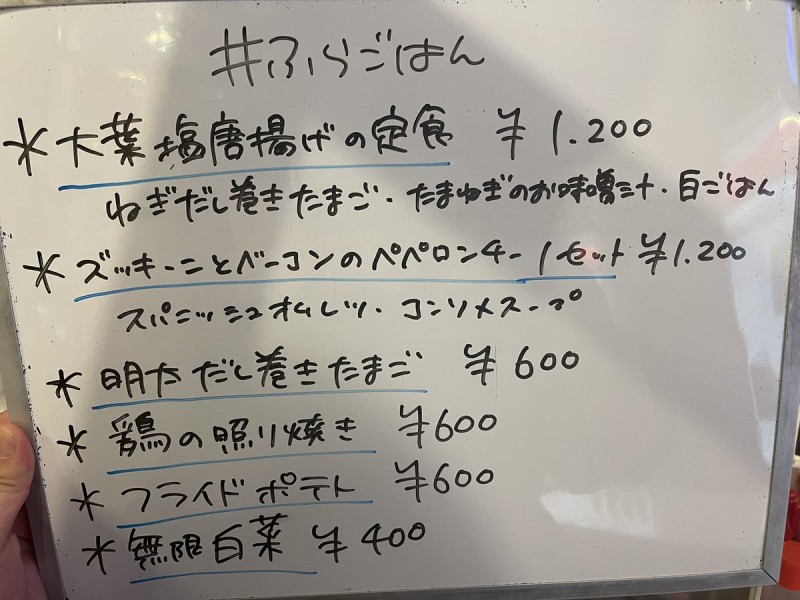 #ふらごはん
* 大葉塩唐揚げの定食 ¥1.200
ねぎだし巻きたまご・たまねぎのお味噌汁・白ごはん
* ズッキーニとベーコンのペペロンチーノセット ¥1.200
スパニッシュオムレツ・コンソメスープ
* 明太だし巻きたまご ¥600
* 鶏の照り焼き ¥600
* フライドポテト ¥600
* 無限白菜 ¥400